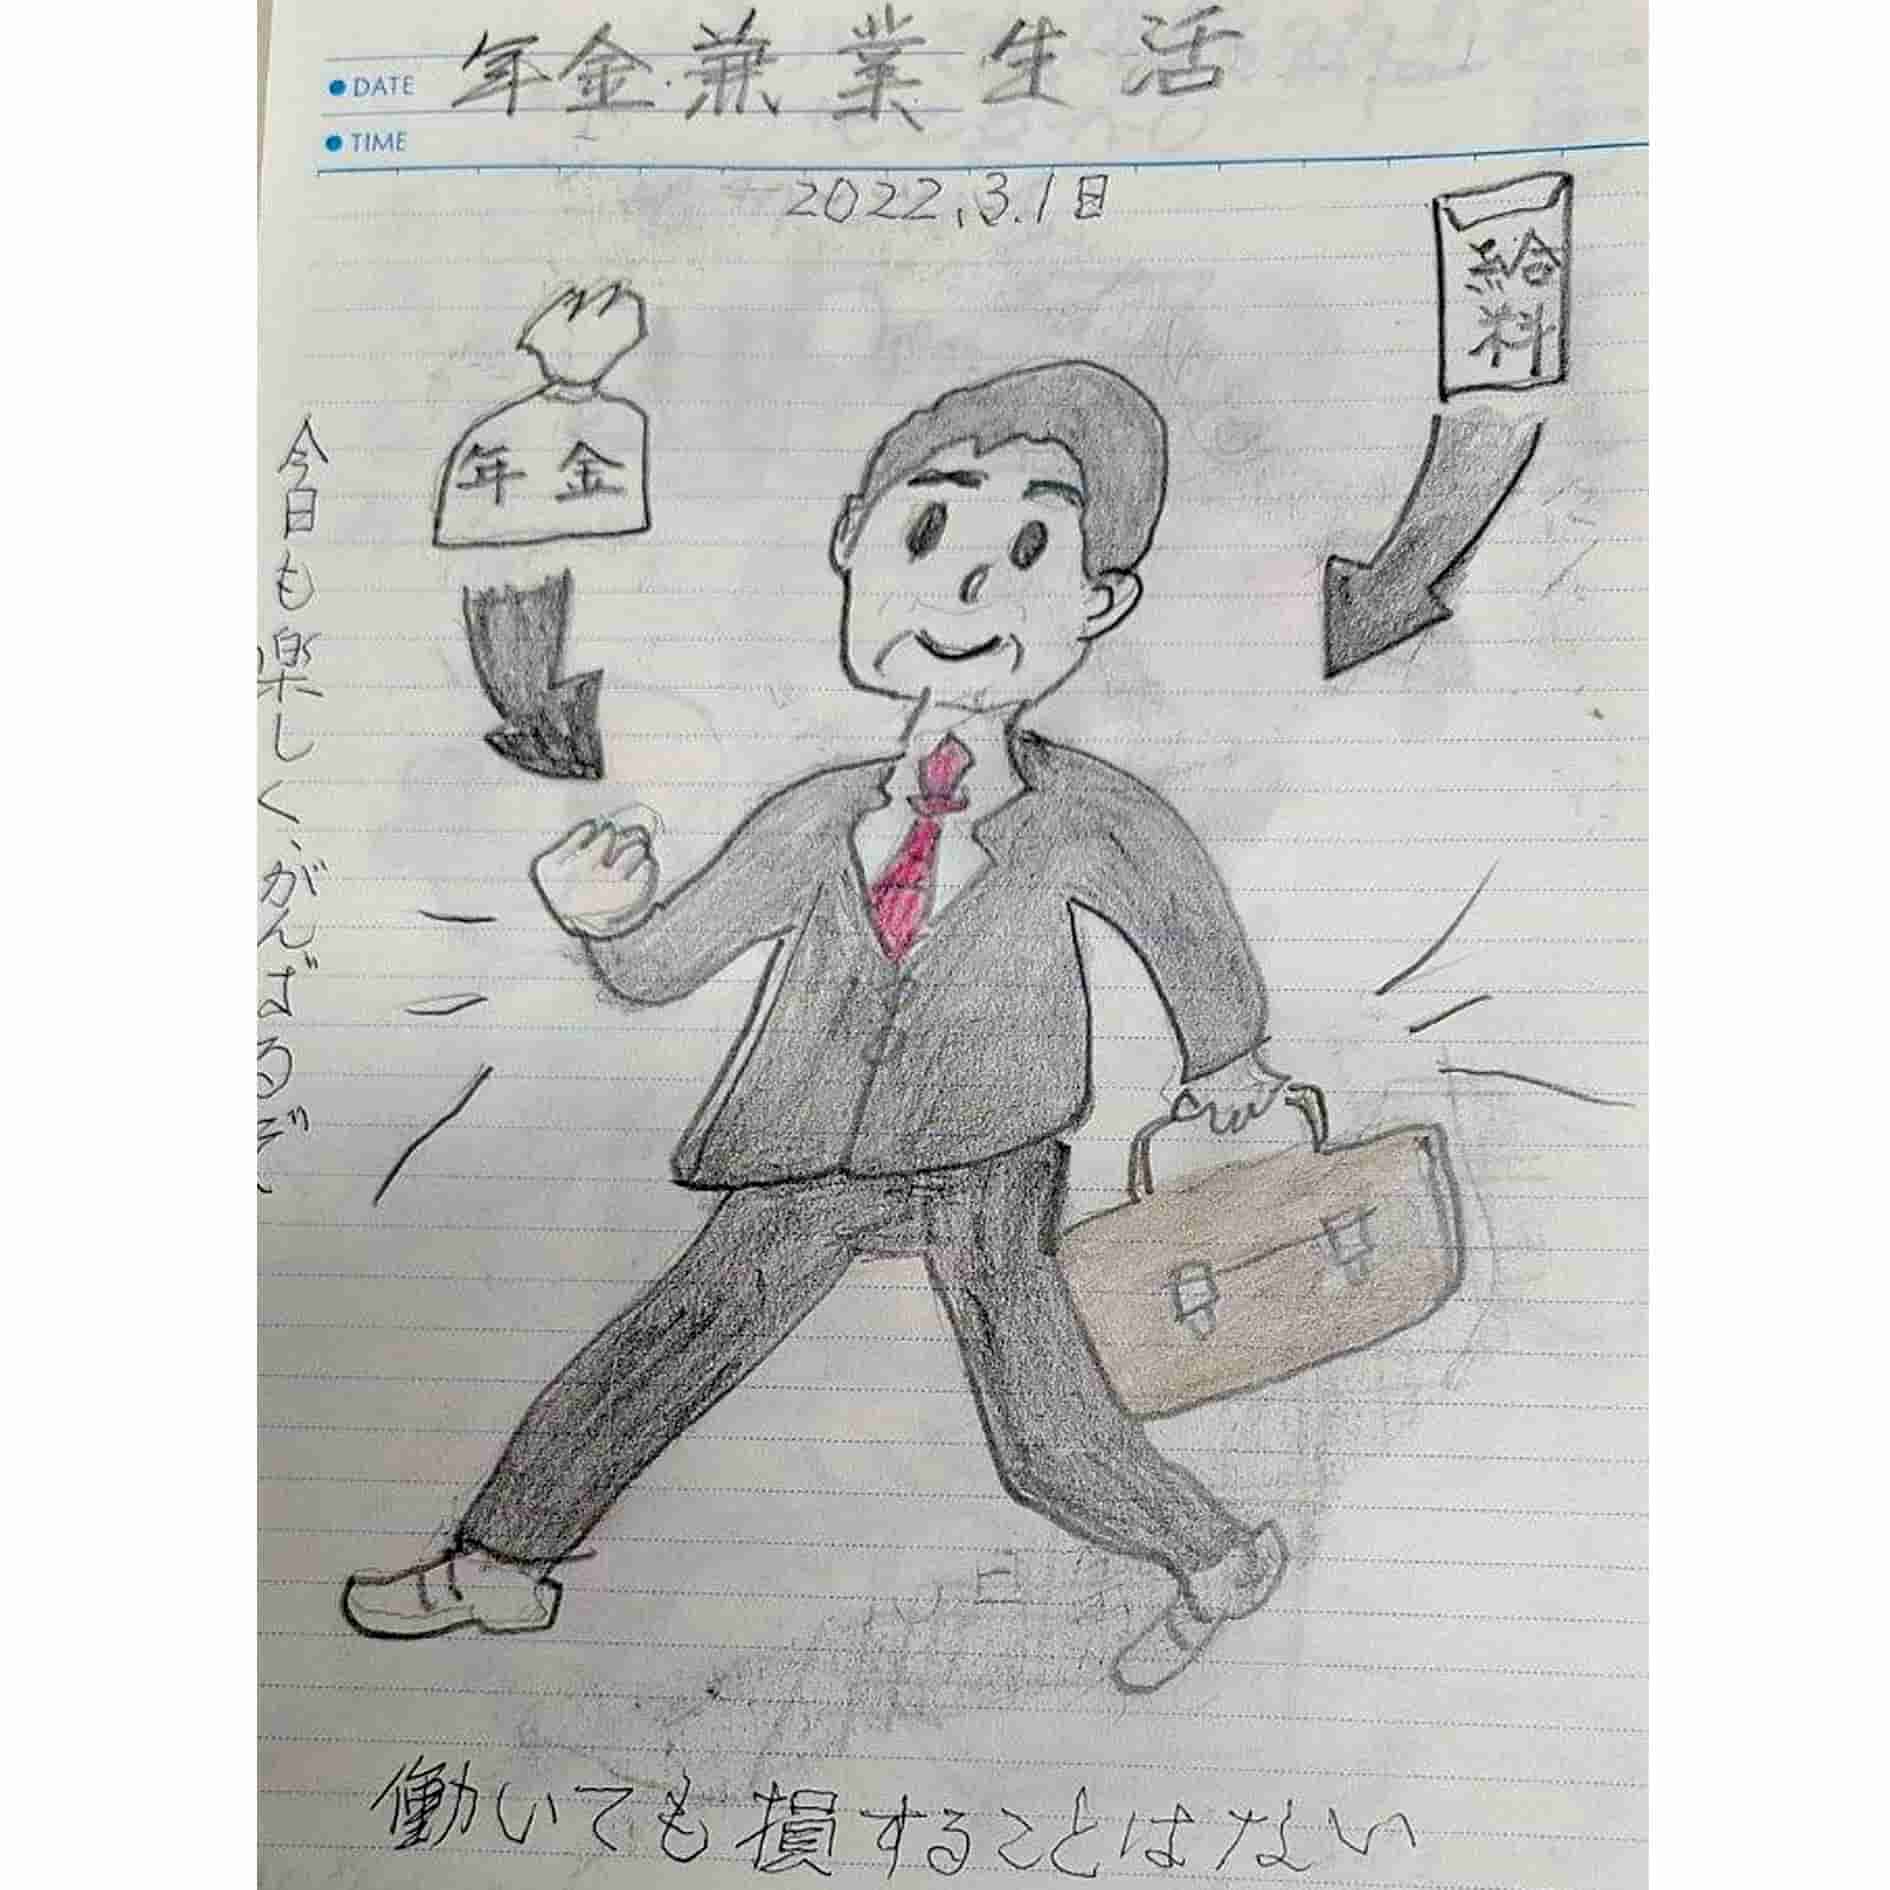 年金兼業生活
DATE
TIME
2022.3.1日
給料
年金
今日も楽しく、がんばるぞ
働いても損することはない